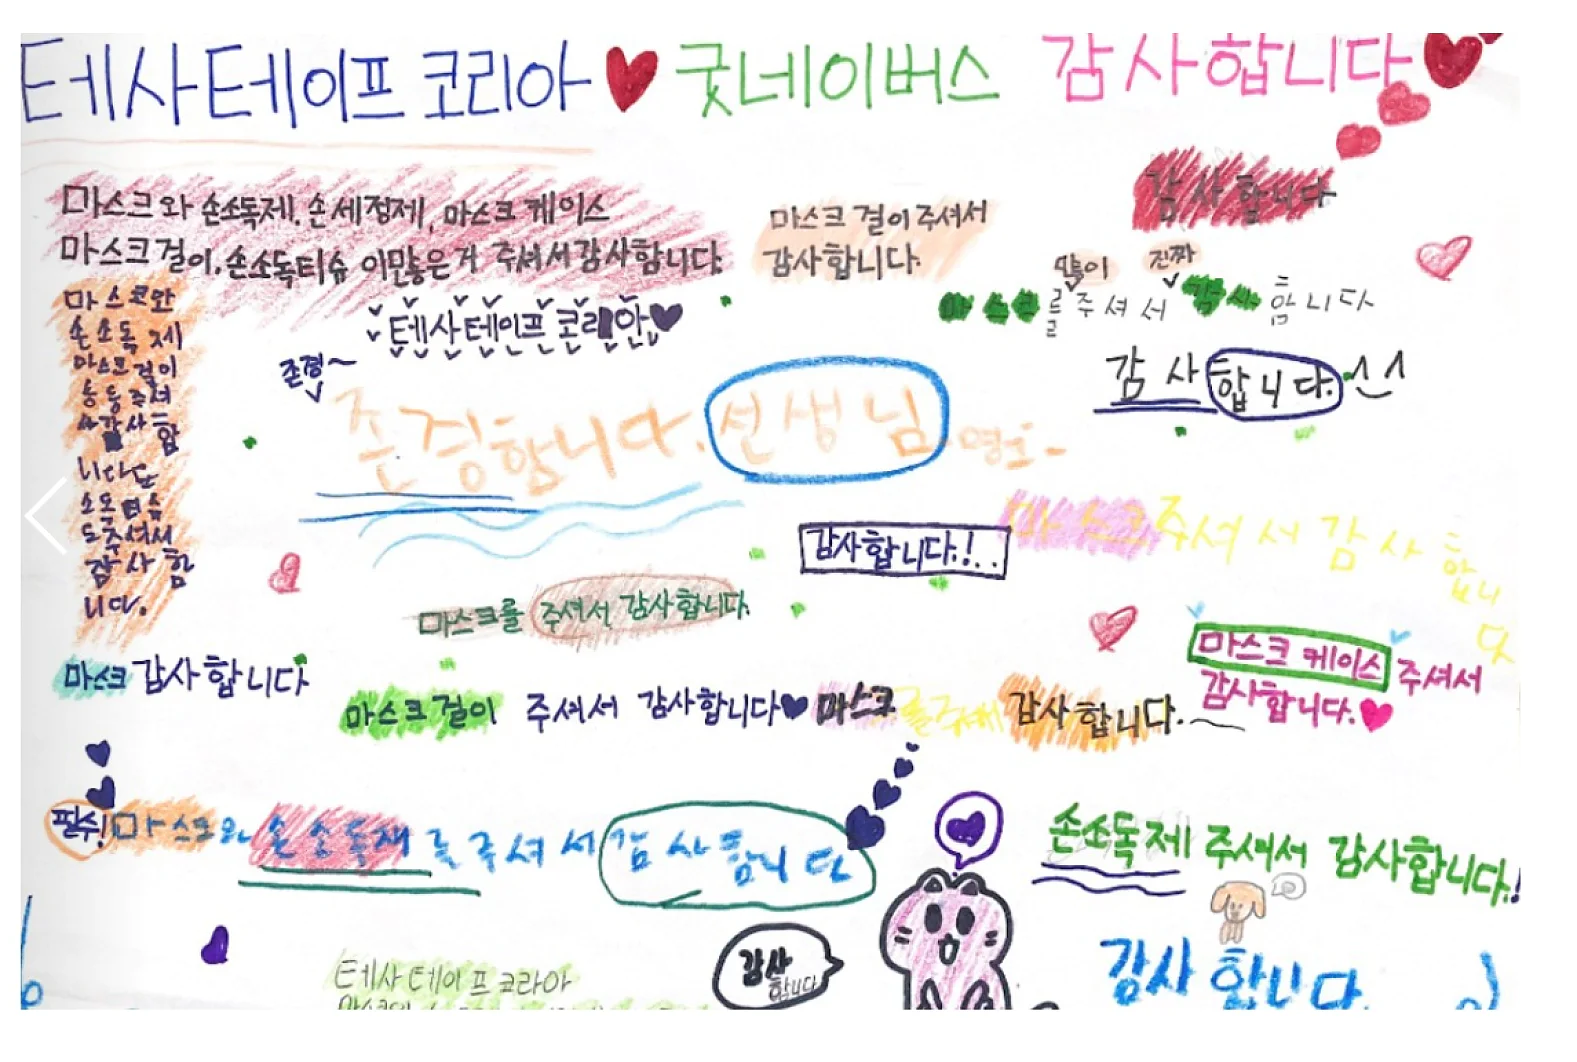 테사테이프 코리아 굿네이버스 감사합니다
마스크와 손소독제, 손세정제, 마스크 케이스
마스크걸이, 손소독티슈 이많은거 주셔서감사합니다
마스크 걸이주셔서
감사합니다.
감사합니다
많이 진짜
마스크를주셔서 감사합니다
마스크와
손소독제
마스크걸이
주셔
감사합
니다
소독
도주셔서
감사합
니다.
테사테이프 코리아
존경~
존경합니다. 선생님
감사합니다.
감사합니다.!..
마스크주셔서 감사합니다
마스크를 주셔서 감사합니다.
마스크 케이스 주셔서
감사합니다.
마스크 감사합니다
마스크걸이 주셔서 감사합니다
마스크를주셔서 감사합니다.
필수! 마스크와 손소독재를주셔서감사합니다
손소독제 주셔서 감사합니다.!
감사합니다
감사합니다.
테사테이프코라아